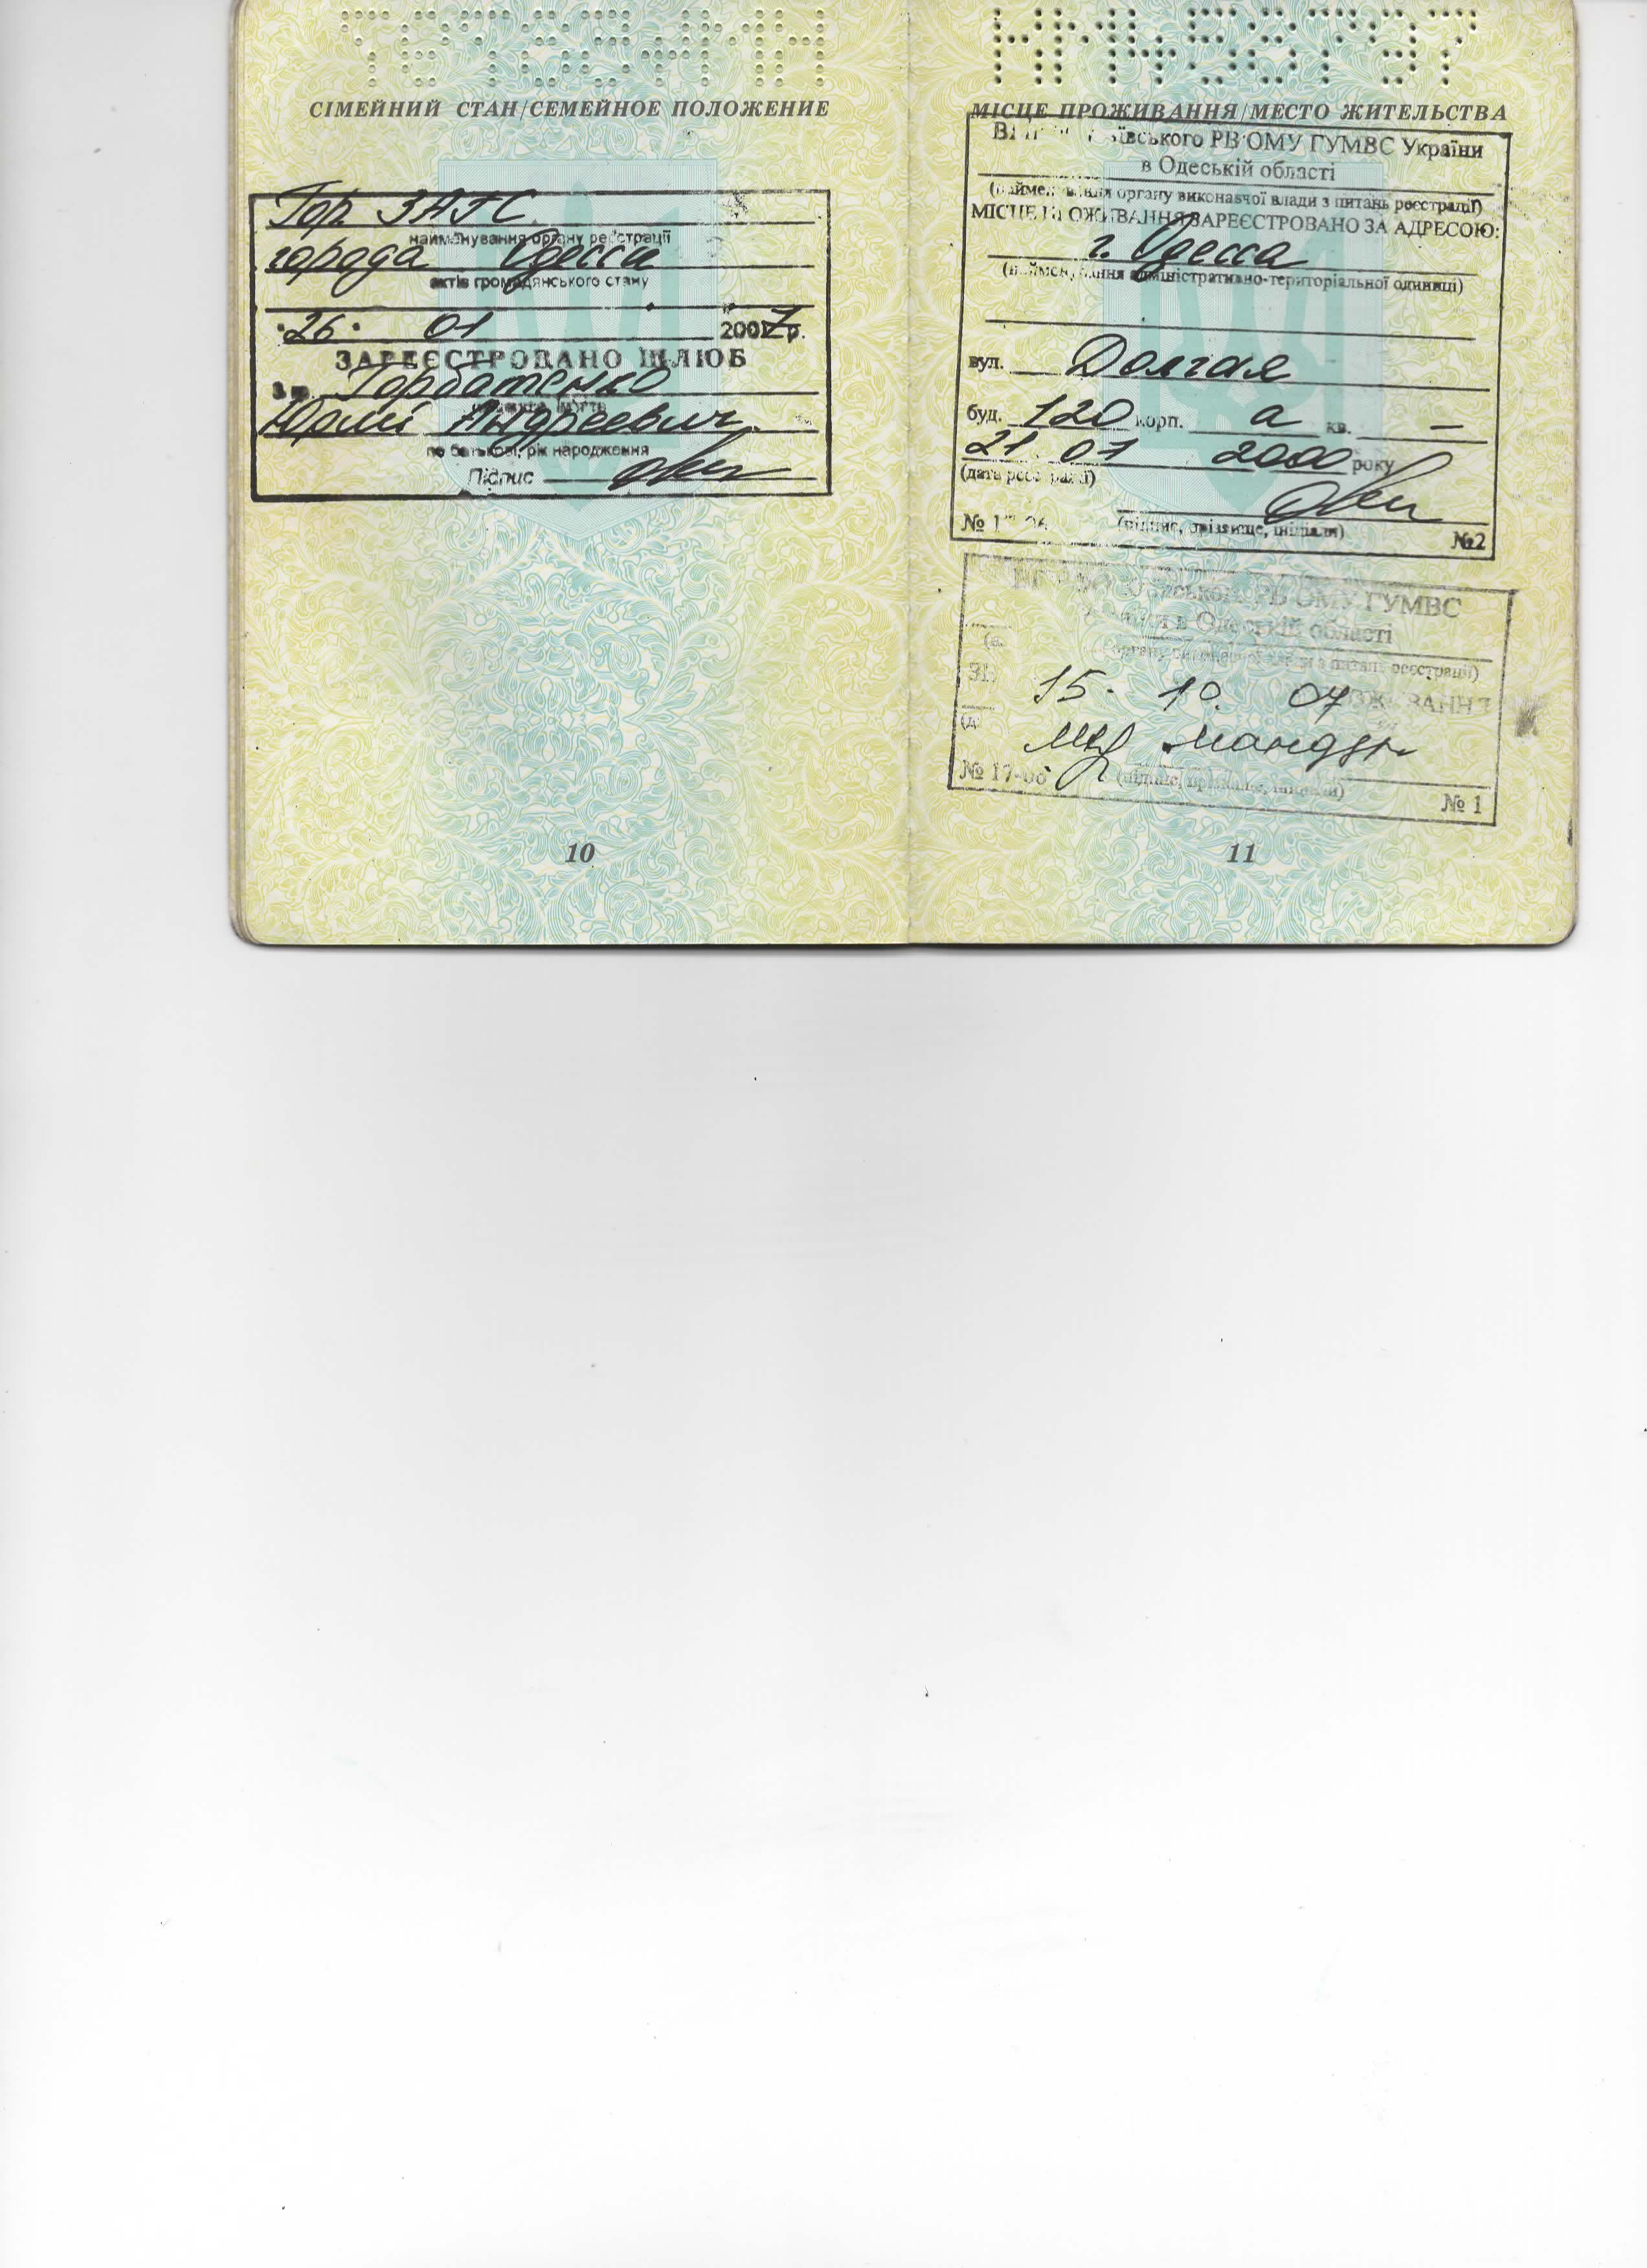 НМ458797
СІМЕЙНИЙ СТАН/СЕМЕЙНОЕ ПОЛОЖЕНИЕ
Гор. ЗАГС
найменування органу реєстрації
города Одесса
актів громадянського стану
26. 01 2007 р.
ЗАРЕЄСТРОВАНО ШЛЮБ
з Горбатенко
Юрий Андреевич
по батькові, рік народження
Підпис
10
МІСЦЕ ПРОЖИВАННЯ/МЕСТО ЖИТЕЛЬСТВА
РВ ОМУ ГУМВС України
в Одеській області
(найменування органу виконавчої влади з питань реєстрації)
МІСЦЕ ПРОЖИВАННЯ ЗАРЕЄСТРОВАНО ЗА АДРЕСОЮ:
г. Одесса
(найменування адміністративно-територіальної одиниці)
вул. Долгая
буд. 120 корп. а кв. –
21 01 2000 року
(дата реєстрації)
(підпис, прізвище, ініціали)
№2
РВ ОМУ ГУМВС
в Одеській області
органу виконавчої влади з питань реєстрації)
15. 10. 07
№ 17-06 (підпис, прізвище, ініціали)
№ 1
11